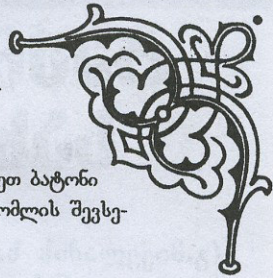 ეთ ბატონი
ომლის შევსე-